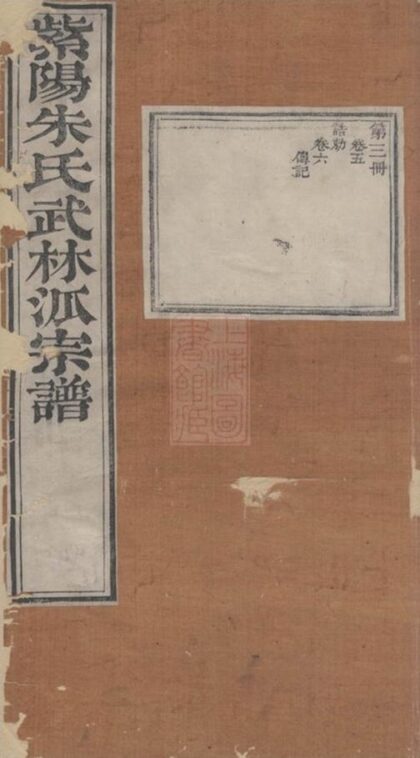 紫陽朱氏武林派宗譜
第三冊
卷五
誥勅
卷六
傳記
上海圖
書館藏